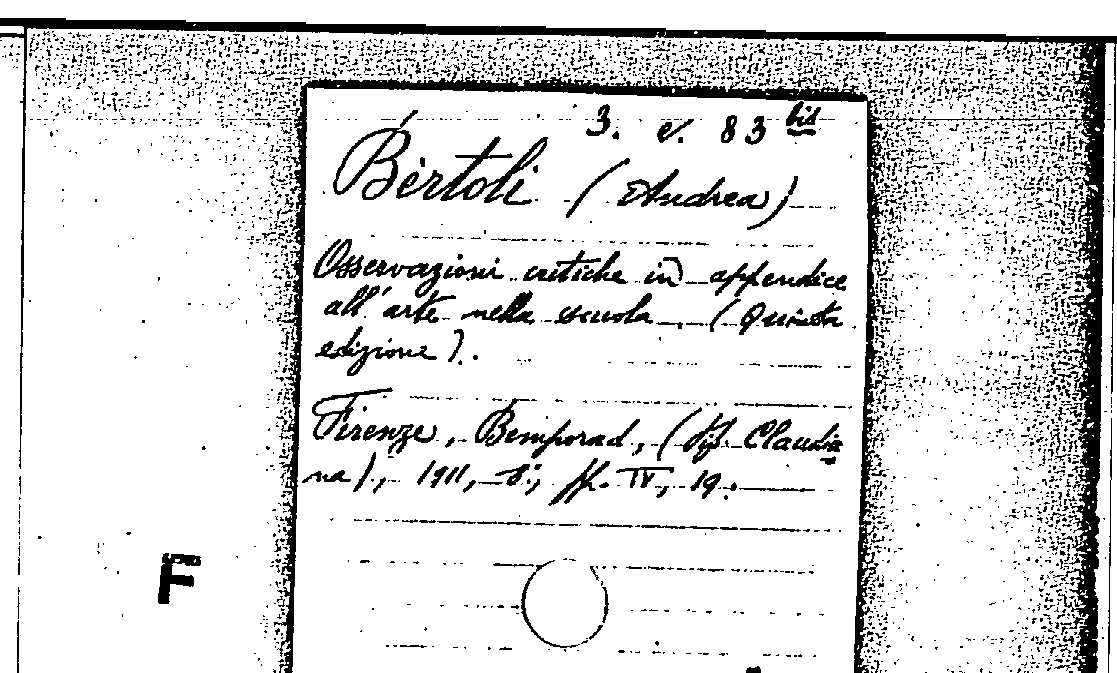 3. e. 83 bis
Bertoli (Andrea)
Osservazioni critiche in appendice
all'arte nella scuola. (Quinta
edizione).
Firenze, Bemporad, (Tip. Claudia
na), 1911, 8°, pp. IV, 19.
F